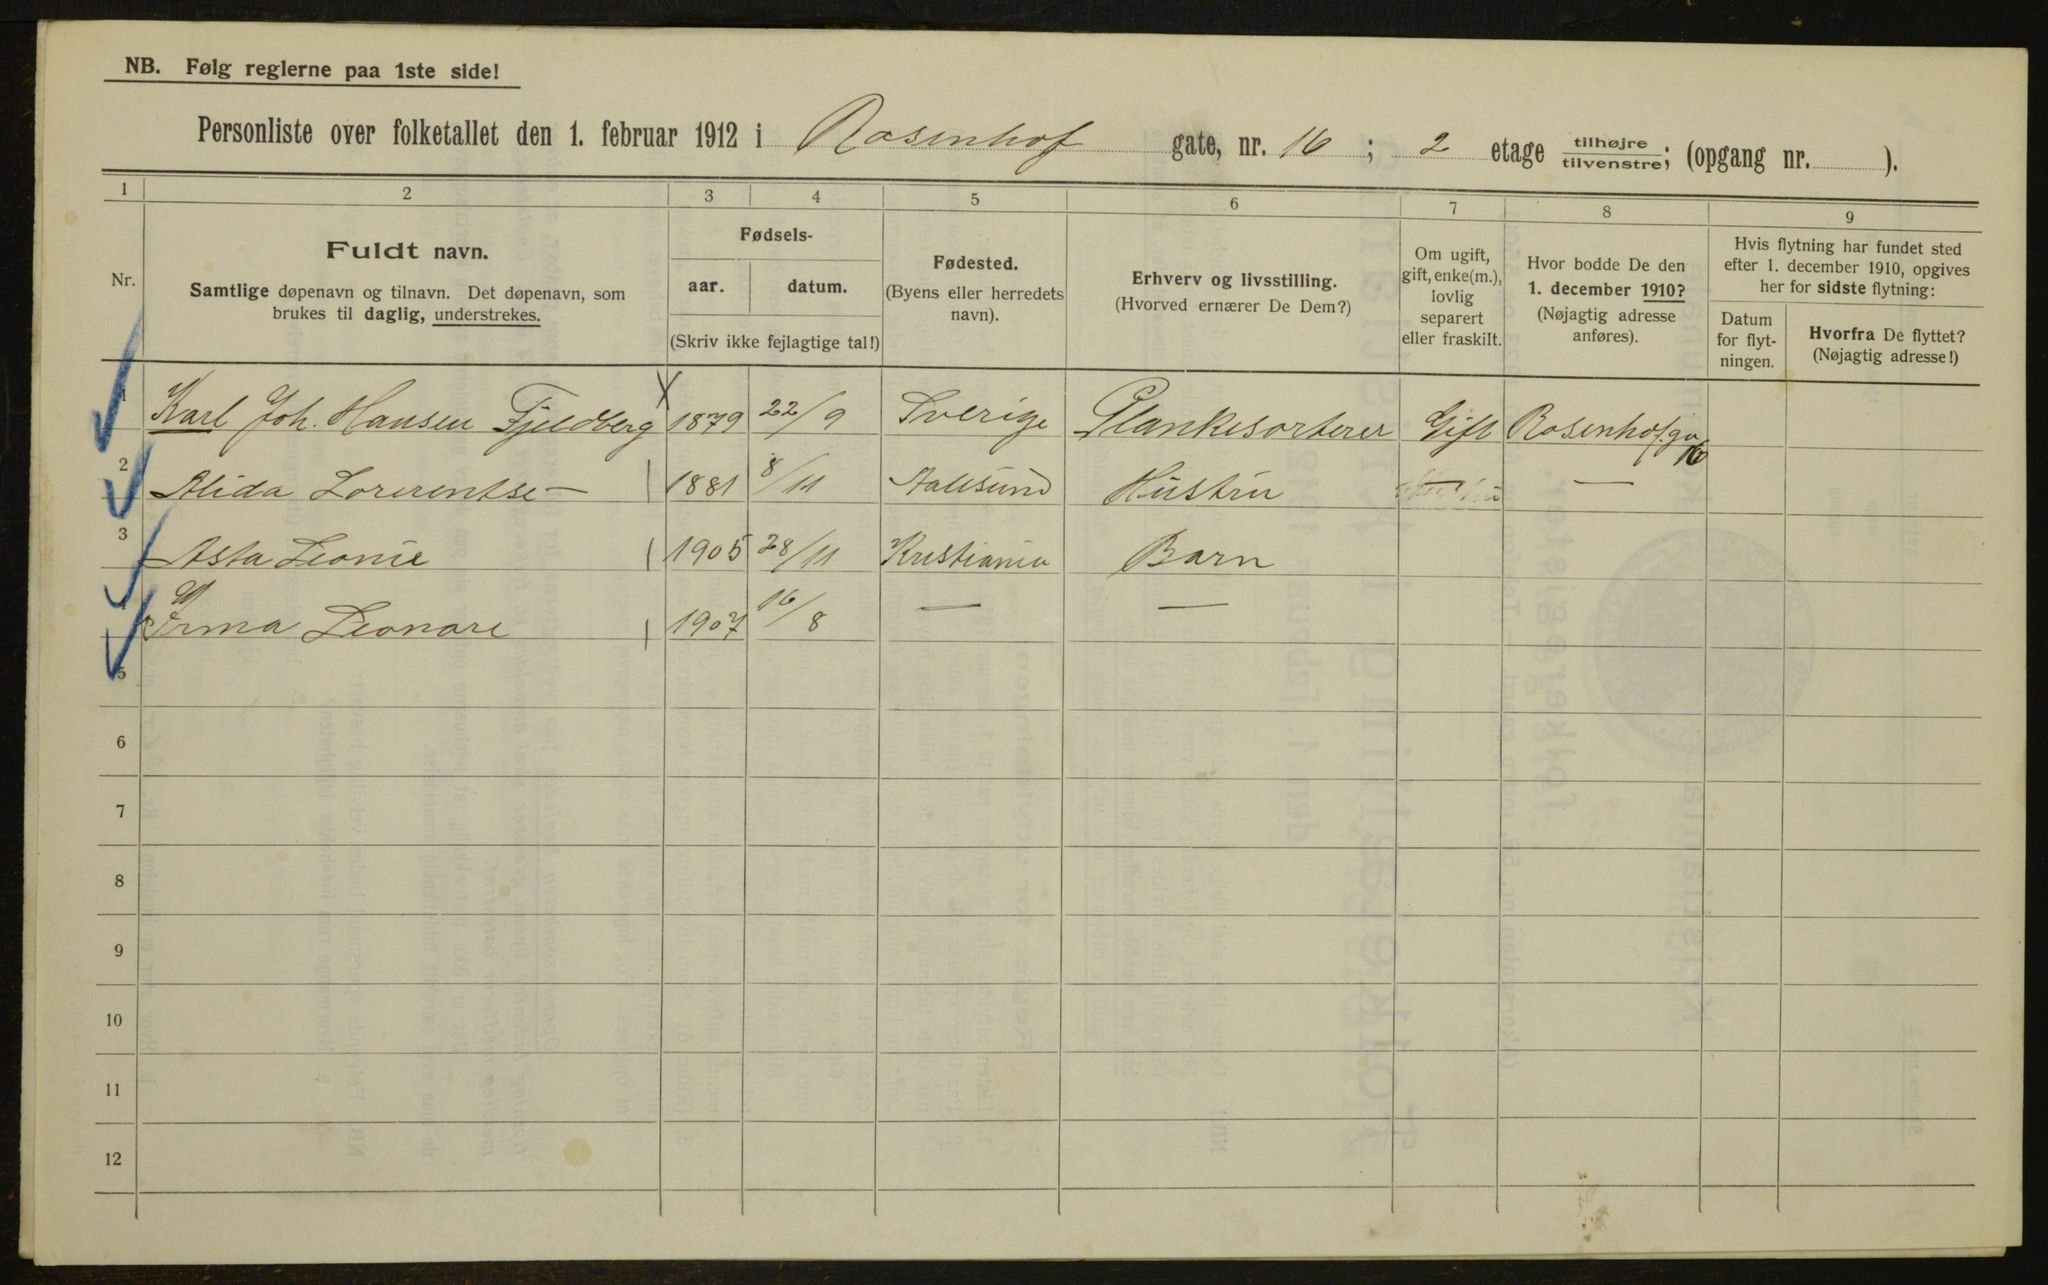 NB. Følg reglerne paa 1ste side!
Personliste over folketallet den 1. februar 1912 i Rosenhof gate, nr. 16; 2 etage tilhøjre tilvenstre; (opgang nr. ).
1 2 3 4 5 6 7 8 9
Nr.
Fuldt navn.
Samtlige døpenavn og tilnavn. Det døpenavn, som
brukes til daglig, understrekes.
Fødsels-
aar. datum.
(Skriv ikke fejlagtige tal!)
Fødested.
(Byens eller herredets
navn).
Erhverv og livsstilling.
(Hvorved ernærer De Dem?)
Om ugift,
gift, enke(m.),
lovlig
separert
eller fraskilt.
Hvor bodde De den
1. december 1910?
(Nøjagtig adresse
anføres).
Hvis flytning har fundet sted
efter 1. december 1910, opgives
her for sidste flytning:
Datum
for flyt-
ningen.
Hvorfra De flyttet?
(Nøjagtig adresse!)
1 Karl Joh. Hansen Fjeldberg X 1879 22/9 Sverige Plankesorterer Gift Rosenhofga 16
2 Alida Lorerentse — 1881 8/11 Aalesund Hustru — —
3 Asta Leonie 1905 28/11 Kristiania Barn
4 Irma Leonore 1907 16/8 — —
5
6
7
8
9
10
11
12